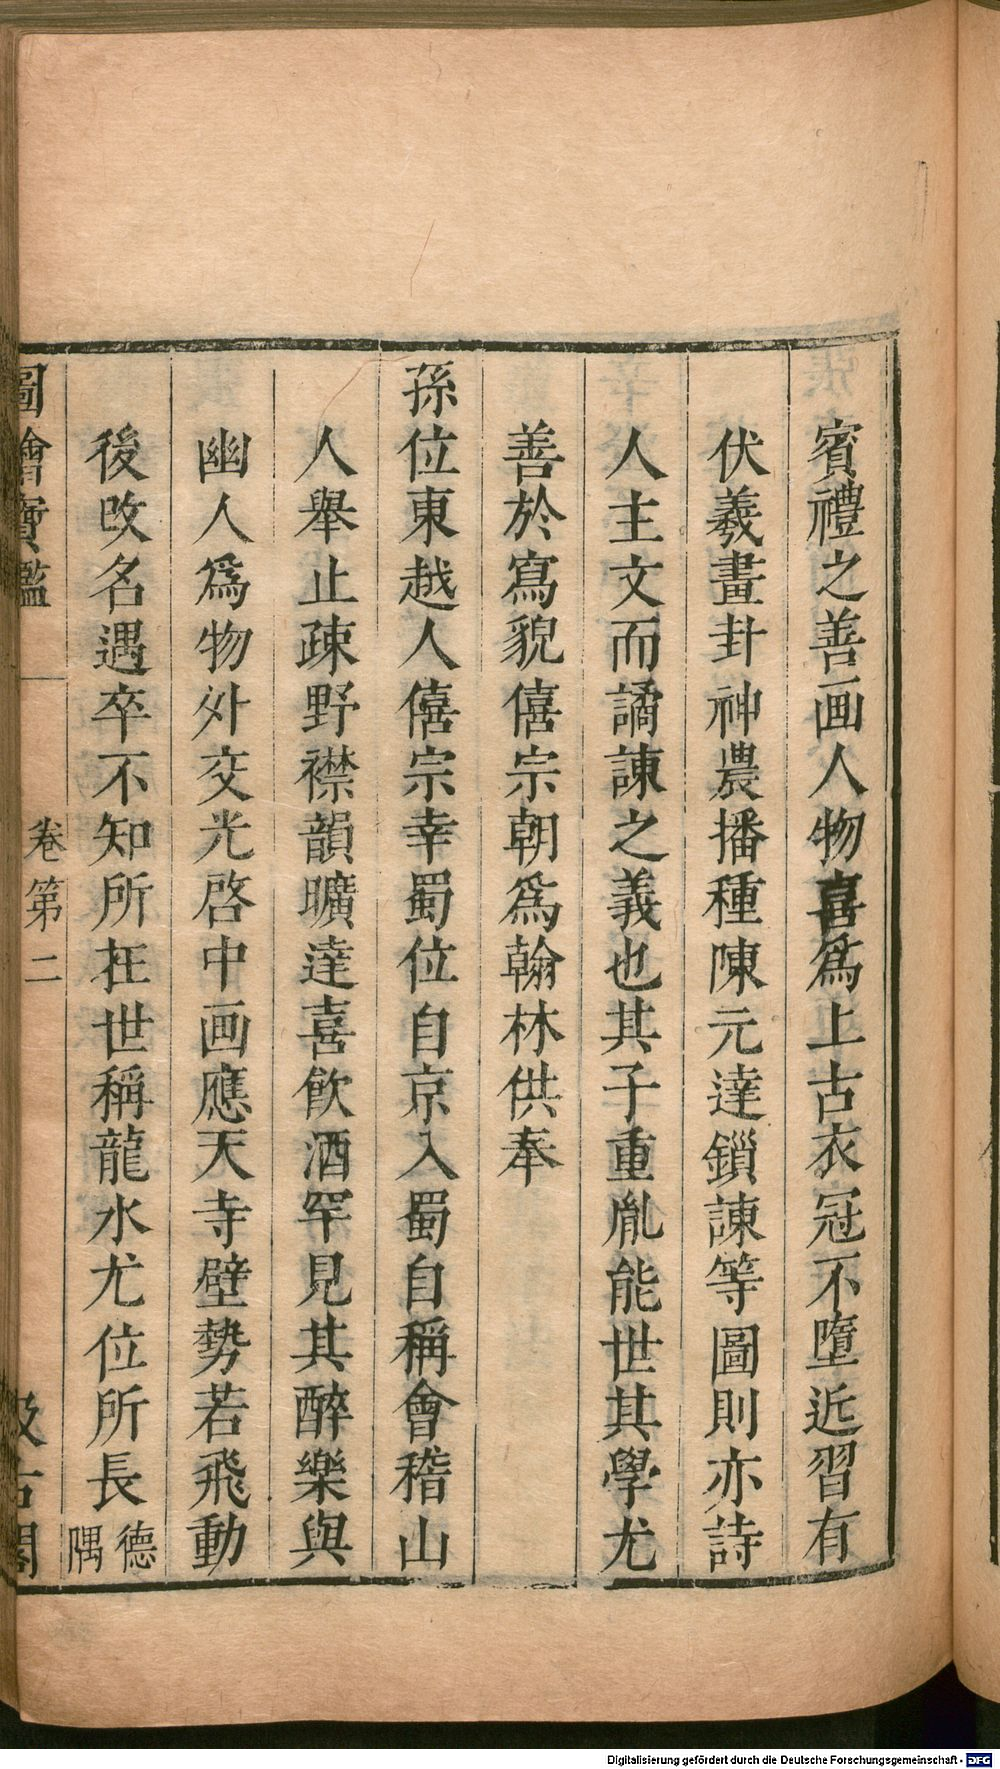 賓禮之善画人物喜爲上古衣冠不墮近習有
伏羲畫卦神農播種陳元達鎖諫等圖則亦詩
人主文而譎諫之義也其子重胤能世其學尤
善於寫貌僖宗朝爲翰林供奉
孫位東越人僖宗幸蜀位自京入蜀自稱會稽山
人舉止疎野襟韻曠達喜飲酒罕見其醉樂與
幽人爲物外交光啓中画應天寺壁勢若飛動
後改名遇卒不知所在世稱龍水尤位所長德
隅
圖繪寶鑑
卷第二
汲古閣
Digitalisierung gefördert durch die Deutsche Forschungsgemeinschaft - DFG